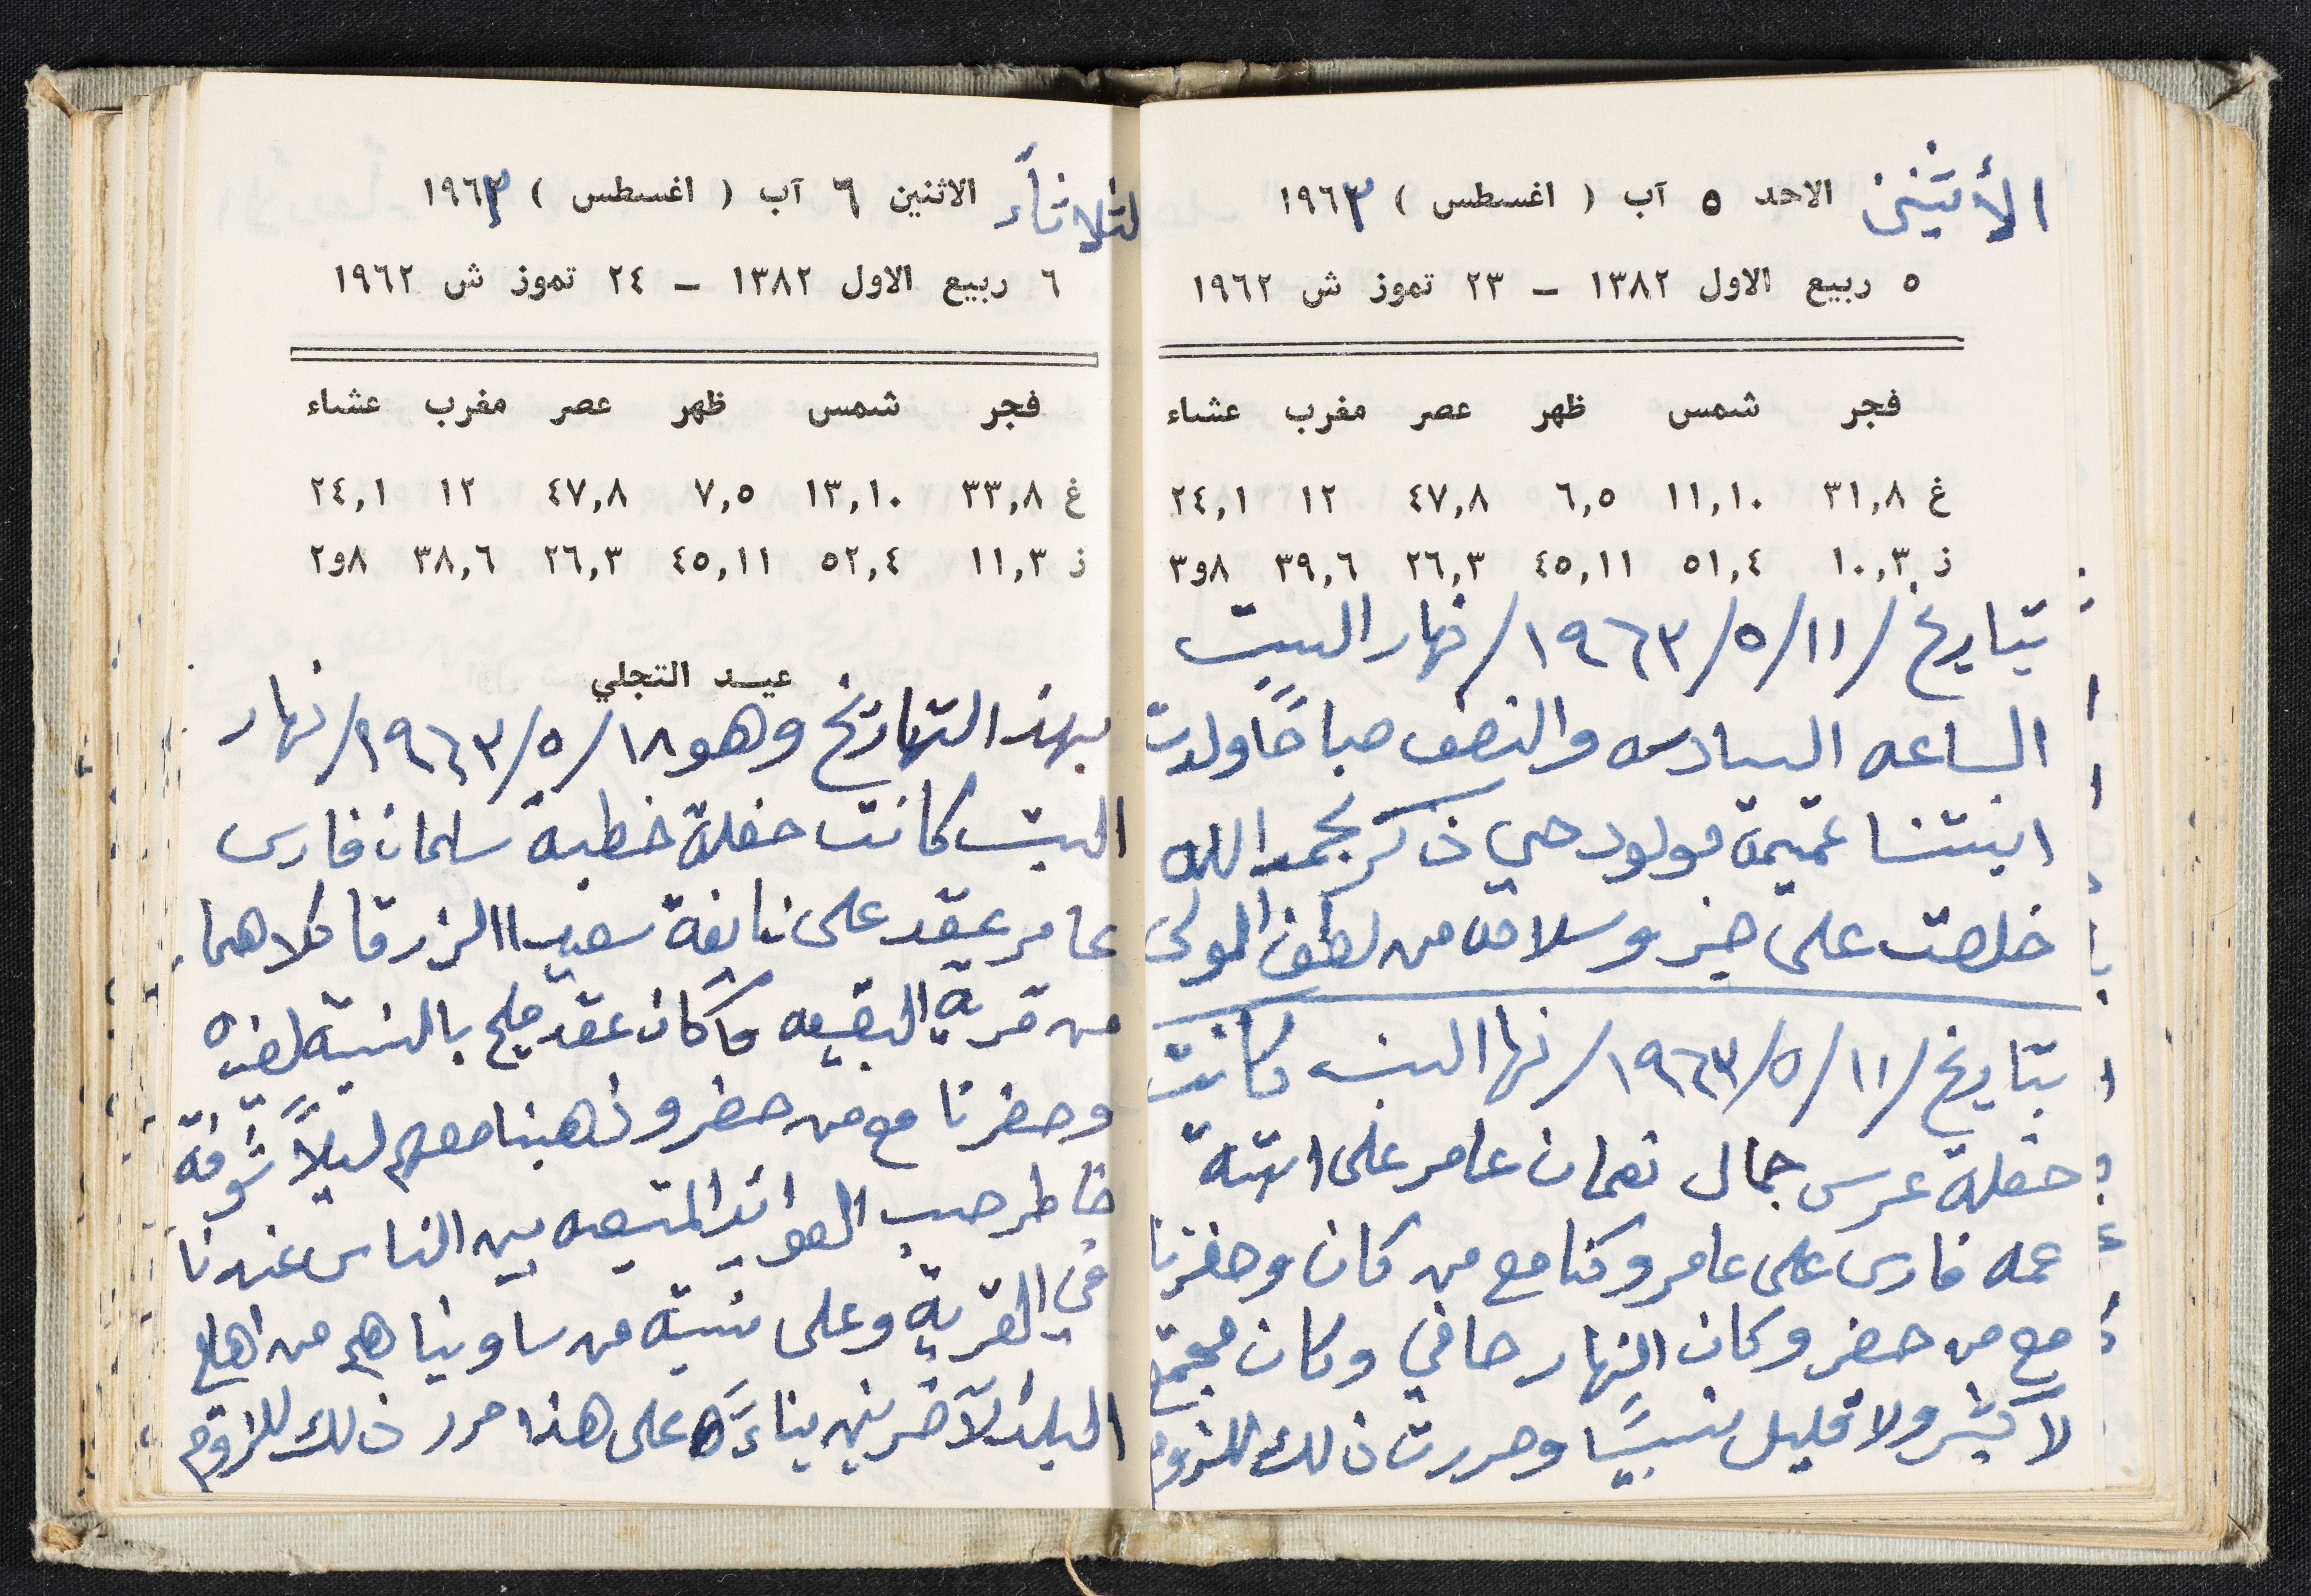 الأثنين الاحد ٥ آب ( اغسطس ) ١٩٦٣
٥ ربيع الاول ١٣٨٢ – ٢٣ تموز ش ١٩٦٢
فجر شمس ظهر عصر مغرب عشاء
غ ٣١,٨ ١١,١٠ ٦,٥ ٤٧,٨ ١٢ ٢٤,١
ز ١٠,٣ ٥١,٤ ٤٥,١١ ٢٦,٣ ٣٩,٦ ٨و٣
بتاريخ / ١١/ ٥/ ١٩٦٣/ نهار السبت
الساعه السادسه والنصف صباحاً ولدت
ابنتنا عميمة مولود حي ذكر بحمد الله
خلصت على خير وسلامه من لطف المولى
بتاريخ / ١١/ ٥/ ١٩٦٣/ نها السبت كانت
حفلة عرس جمال نعمان عامر على ابنة
عمه فارس على عامر وكنا مع من كان وحضرنا
مع من حضر وكان النهار صافي وكان مجتمع
لا كثير ولا قليل نسبيًا وحررت ذلك للزوم
لثلاثاء الاثنين ٦ آب ( اغسطس ) ١٩٦٣
٦ ربيع الاول ١٣٨٢ – ٢٤ تموز ش ١٩٦٢
فجر شمس ظهر عصر مغرب عشاء
غ ٣٣,٨ ١٣,١٠ ٧,٥ ٤٧,٨ ١٢ ٢٤,١
ز ١١,٣ ٥٢,٤ ٤٥,١١ ٢٦,٣ ٣٨,٦ ٨و٢
عيد التجلي
بهذ التاريخ وهو ١٨/ ٥/ ١٩٦٣/ نهار
السبت كانت حفلة خطبة سلمان فارس
عامر عقد على نايفة سعيد الزرقا كلاهما
من قرية البقيعه وكان عقد مليح بالنسبة لغيره
وحضرنا مع من حضر وذهبنا معهم ليلاً شوفة
خاطر حسب العوائد المتبعه بين الناس عندنا
في القرية وعلى نسبة من ساوينا هم من اهل
البلد الآخرين بناءً على هذا حرر ذلك للزوم